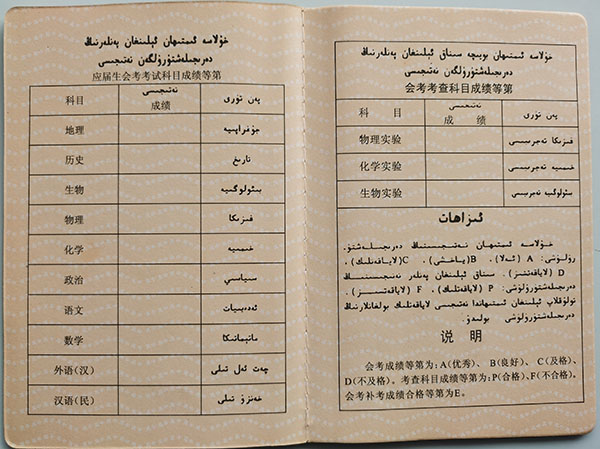 خۇلاسە ئىمتىھان ئېلىنغان پەنلەرنىڭ
دەرىجىلەشتۈرۈلگەن نەتىجىسى
应届生会考考试科目成绩等第
科目 نەتىجىسى 成绩 پەن تۈرى
地理 جۇغراپىيە
历史 تارىخ
生物 بىئولوگىيە
物理 فىزىكا
化学 خىمىيە
政治 سىياسىي
语文 ئەدەبىيات
数学 ماتېماتىكا
外语(汉) چەت ئەل تىلى
汉语(民) خەنزۇ تىلى
خۇلاسە ئىمتىھان بويىچە سىناق ئېلىنغان پەنلەرنىڭ
دەرىجىلەشتۈرۈلگەن نەتىجىسى
会考考查科目成绩等第
科 目 نەتىجىسى 成 绩 پەن تۈرى
物理实验 فىزىكا تەجرىبىسى
化学实验 خىمىيە تەجرىبىسى
生物实验 بىئولوگىيە تەجرىبىسى
ئىزاھات
خۇلاسە ئىمتىھان نەتىجىسىنىڭ دەرىجىلەشتۈ-
رۈلۈشى: A (ئەلا)، B (ياخشى)، C (لاياقەتلىك)،
D (لاياقەتسىز). سىناق ئېلىنغان پەنلەر نەتىجىسىنىڭ
دەرىجىلەشتۈرۈلۈشى: P (لاياقەتلىك)، F (لاياقەتسىز).
تولۇقلاپ ئېلىنغان ئىمتىھاندا نەتىجىسى لاياقەتلىك بولغانلارنىڭ
دەرىجىلەشتۈرۈلۈشى E بولىدۇ.
说 明
会考成绩等第为:A(优秀)、B(良好)、C(及格)、
D(不及格)。考查科目成绩等第为:P(合格)、F(不合格)。
会考补考成绩合格等第为E。